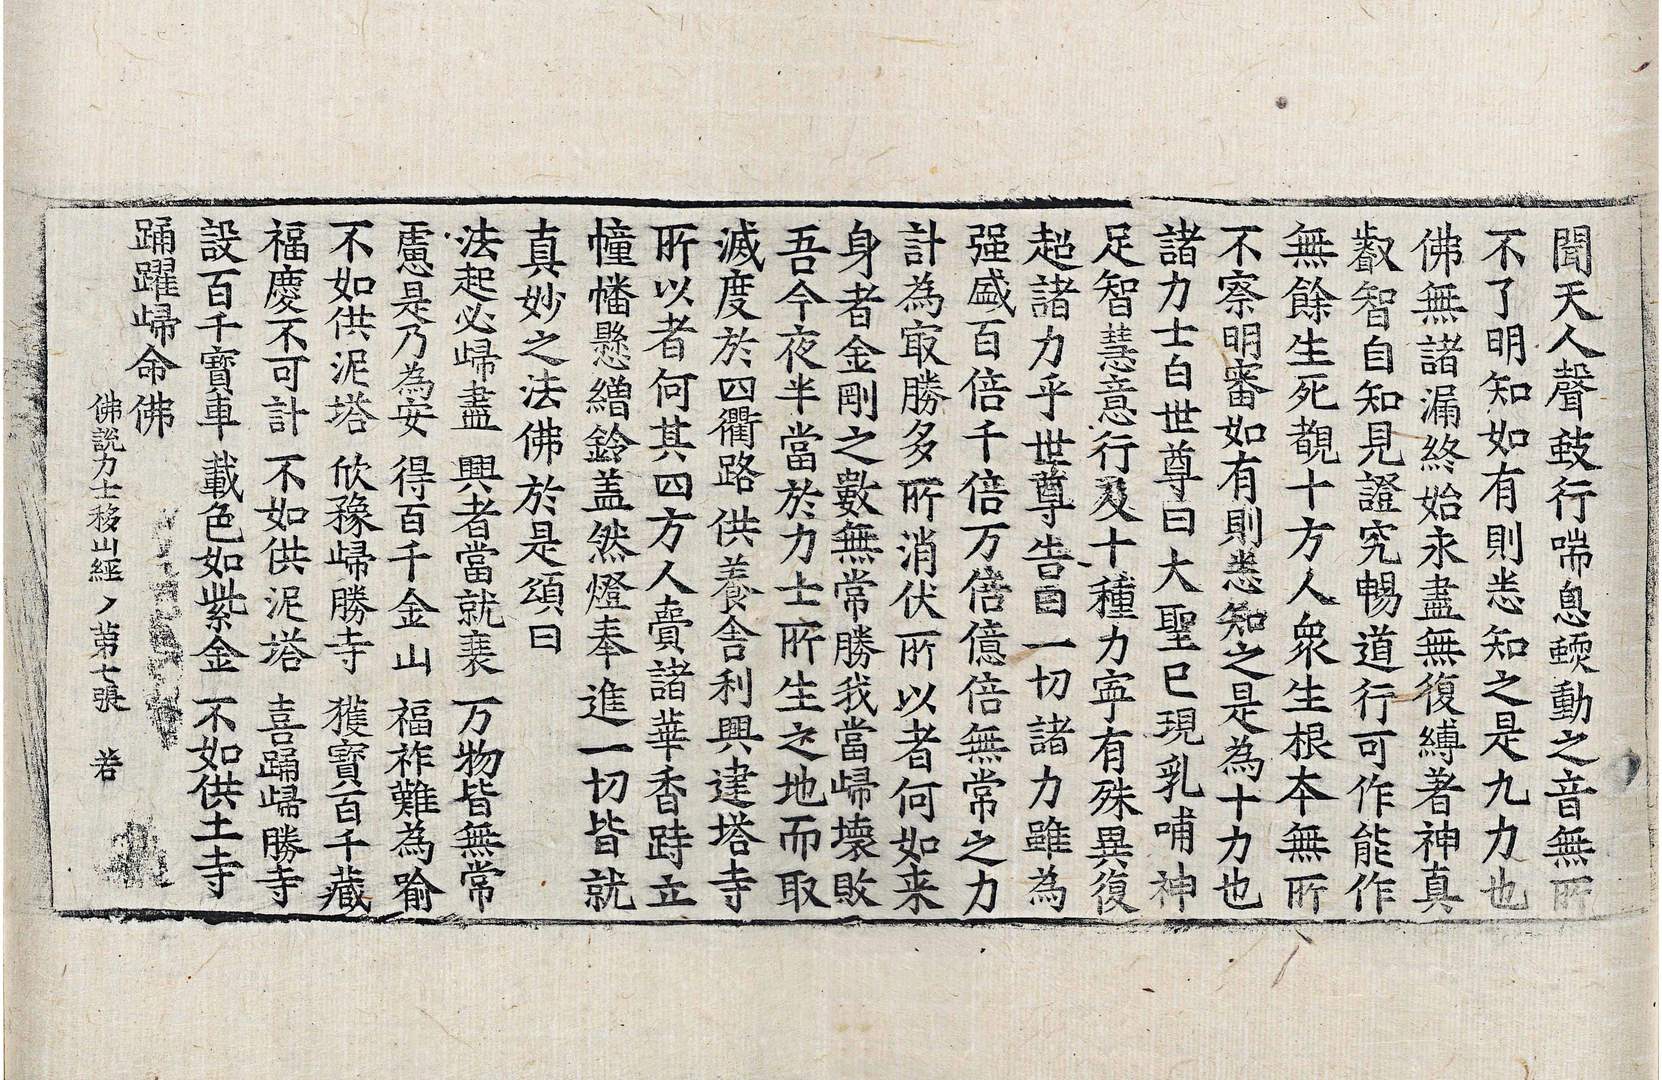 聞天人聲蚑行喘息蝡動之音無所
不了明知如有則悉知之是九力也
佛無諸漏終始永盡無復縛著神真
叡智自知見證究暢道行可作能作
無餘生死覩十方人衆生根本無所
不察明審如有則悉知之是為十力也
諸力士白世尊曰大聖已現乳哺神
足智慧意行及十種力寧有殊異復
超諸力乎世尊告曰一切諸力雖為
强盛百倍千倍万倍億倍無常之力
計為冣勝多所消伏所以者何如来
身者金剛之數無常勝我當歸壞敗
吾今夜半當於力士所生之地而取
滅度於四衢路供養舍利興建塔寺
所以者何其四方人賷諸華香跱立
幢幡懸繒鈴盖然燈奉進一切皆就
真妙之法佛於是頌曰
法起必歸盡 興者當就衰 万物皆無常
慮是乃為安 得百千金山 福祚難為喻
不如供泥塔 欣豫歸勝寺 獲寶百千藏
福慶不可計 不如供泥塔 喜踊歸勝寺
設百千寶車 載色如紫金 不如供土寺
踊躍歸命佛
佛說力士移山經 第七張 若